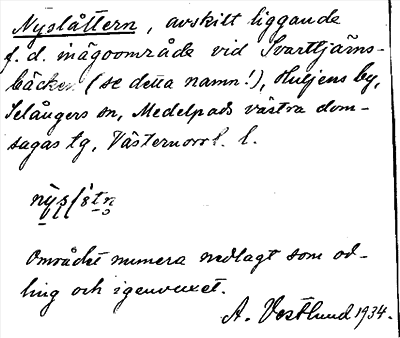 Nyslåttern, avskilt liggande
f. d. inägoområde vid Svarttjärns-
bäcken (se detta namn!), Huljens by,
Selångers sn, Medelpads västra dom-
sagas tg, Västernorrl. l.
Området numera nedlagt som od-
ling och igenvuxet.
A. Vestlund 1934.